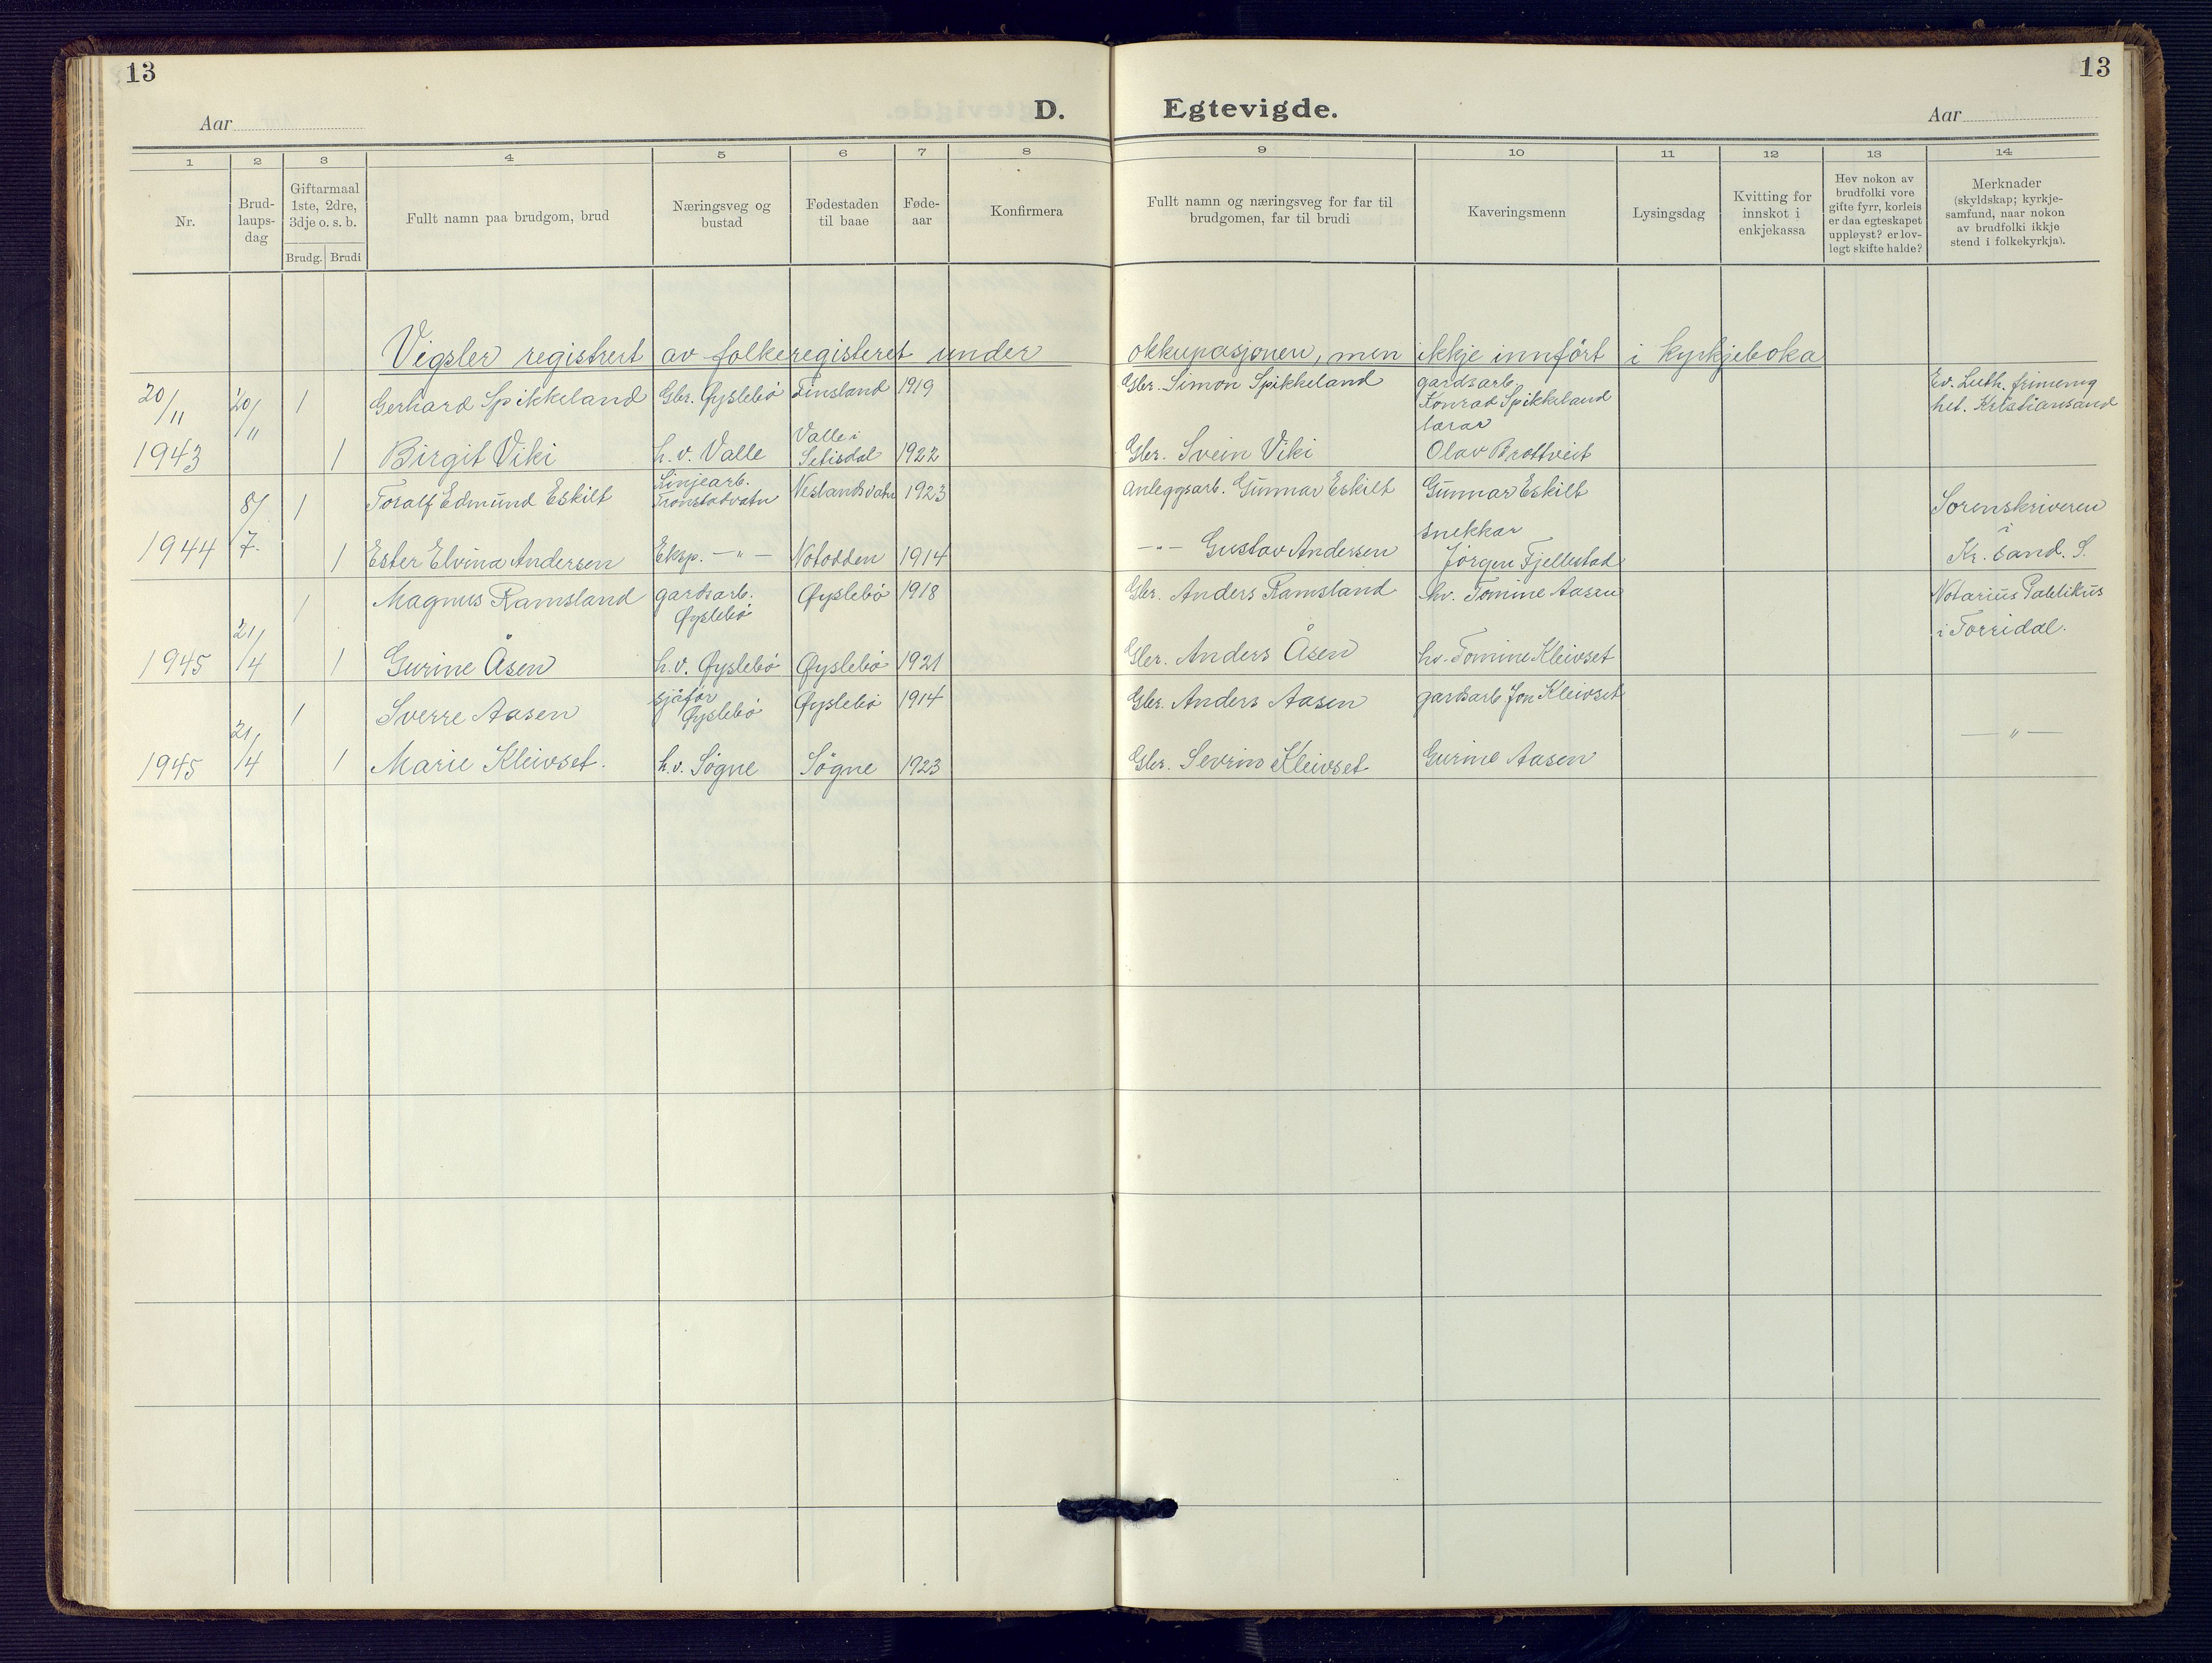 13
13
Aar
D. Egtevigde.
Aar
1 2 3 4 5 6 7 8 9 10 11 12 13 14
Nr.
Brud-
laups-
dag
Giftarmaal
1ste, 2dre,
3dje o. s. b.
Brudg. Brudi
Fullt namn paa brudgom, brud
Næringsveg og
bustad
Fødestaden
til baae
Føde-
aar
Konfirmera
Fullt namn og næringsveg for far til
brudgomen, far til brudi
Kaveringsmenn
Lysingsdag
Kvitting for
innskot i
enkjekassa
Hev nokon av
brudfolki vore
gifte fyrr, korleis
er daa egteskapet
uppløyst? er lov-
legt skifte halde?
Merknader
(skyldskap; kyrkje-
samfund, naar nokon
av brudfolki ikkje
stend i folkekyrkja).
Vigsler registrert av folkeregisteret under okkupasjonen, men ikkje innført i kyrkjeboka
20/11
1943
20/11
1
Gerhard Spikkeland
Gbr. Øyslebø
Finsland
1919
Gbr. Simon Spikkeland
gardsarb.
Konrad Spikkeland
Ev. Luth. frimenig
het. Kristiansand
1
Birgit Viki
h.v. Valle
Valle i
Setisdal
1922
Gbr. Svein Viki
lærar
Olav Brottveit
1944
8/7.
1
Toralf Edmund Eskilt
Linjearb.
Tronstadvatn
Neslandsvatn
1923
Anleggsarb. Gunnar Eskilt
Gunnar Eskilt
Sorenskriveren
i
Kr. sand. S.
1
Ester Elvina Andersen
Eksp. — " —
Notodden
1914
— " — Gustav Andersen
snekkar
Jørgen Fjellestad
1945
21/4
1
Magnus Ramsland
gardsarb.
Øyslebø
Øyslebø
1918
Gbr. Anders Ramsland
hv. Tomine Aasen
Notarius Publikus
i Torridal.
1
Gurine Åsen
h.v. Øyslebø
Øyslebø
1921
Gbr. Anders Åsen
hv. Tomine Kleivset
1945
21/4
1
Sverre Aasen
sjåfør
Øyslebø
Øyslebø
1914
Gbr. Anders Aasen
gardsarb Jon Kleivset
— " —
1
Marie Kleivset.
h.v. Søgne
Søgne
1923
Gbr. Sevrin Kleivset
Gurine Aasen